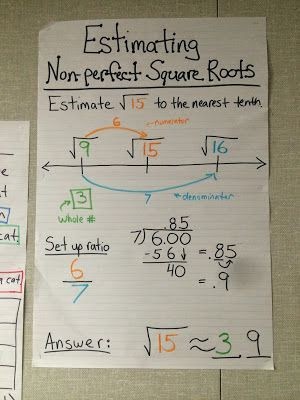 Estimating
Non-perfect Square Roots
Estimate √15 to the nearest tenth.
6 numerator
√9 √15 √16
3 7 denominator
Whole #
Set up ratio
6
7
.85
7)6.00
-56
40
= .85
= .9
Answer: √15 ≈ 3.9
cat.
a cat.